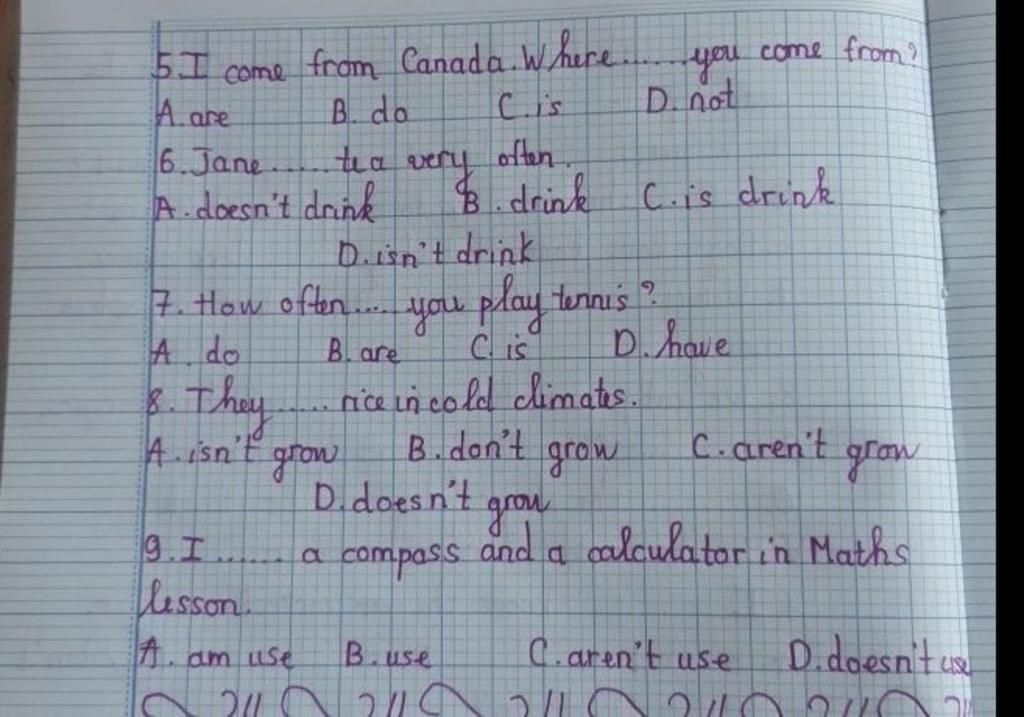 5 I come from Canada. Where...... you come from?
A. are B. do C. is D. not
6. Jane...... tea very often.
A. doesn't drink B. drink C. is drink
D. isn't drink
7. How often.... you play tennis?
A. do B. are C. is D. have
8. They...... rice in cold climates.
A. isn't grow B. don't grow C. aren't grow
D. doesn't grow
9. I...... a compass and a calculator in Maths
lesson.
A. am use B. use C. aren't use D. doesn't use